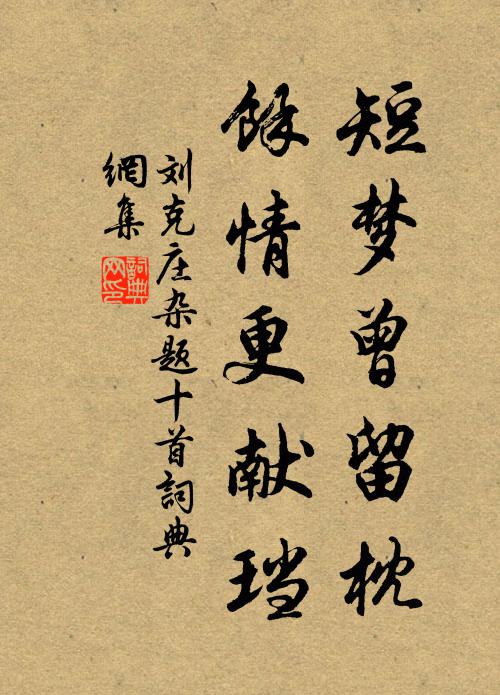 短梦曾留枕
馀情更献珰
刘克庄杂题十首詞典
網集
詞典
网印